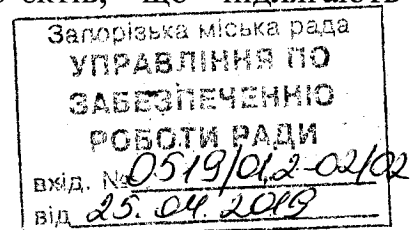 що підлягають
Запорізька міська рада
УПРАВЛІННЯ ПО
ЗАБЕЗПЕЧЕННЮ
РОБОТИ РАДИ
вхід. № 0519/01,2-02/02
від 25.04.2019